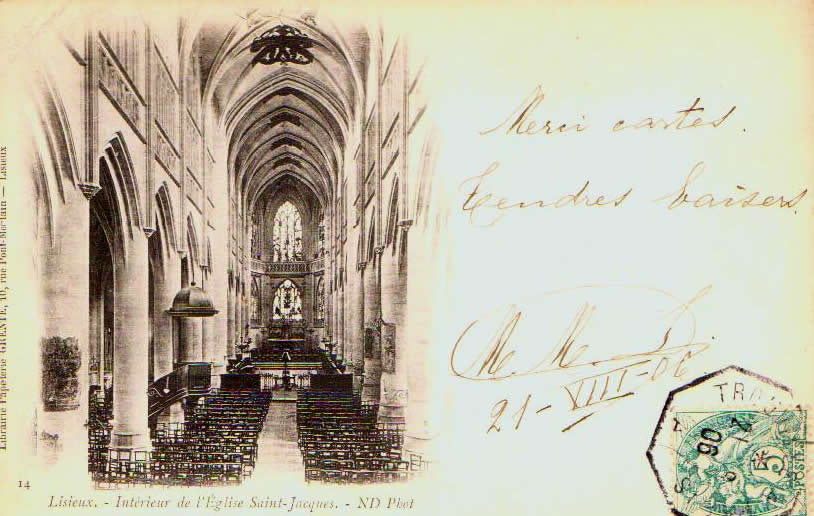 Librairie Papeterie GRENTE, 10, rue Pont-Mortain — Lisieux
Merci cartes.
Tendres baisers.
M. M. D.
21-VIII-06
TRA
06
5
POSTES
14
Lisieux. - Intérieur de l'Église Saint-Jacques. - ND Phot